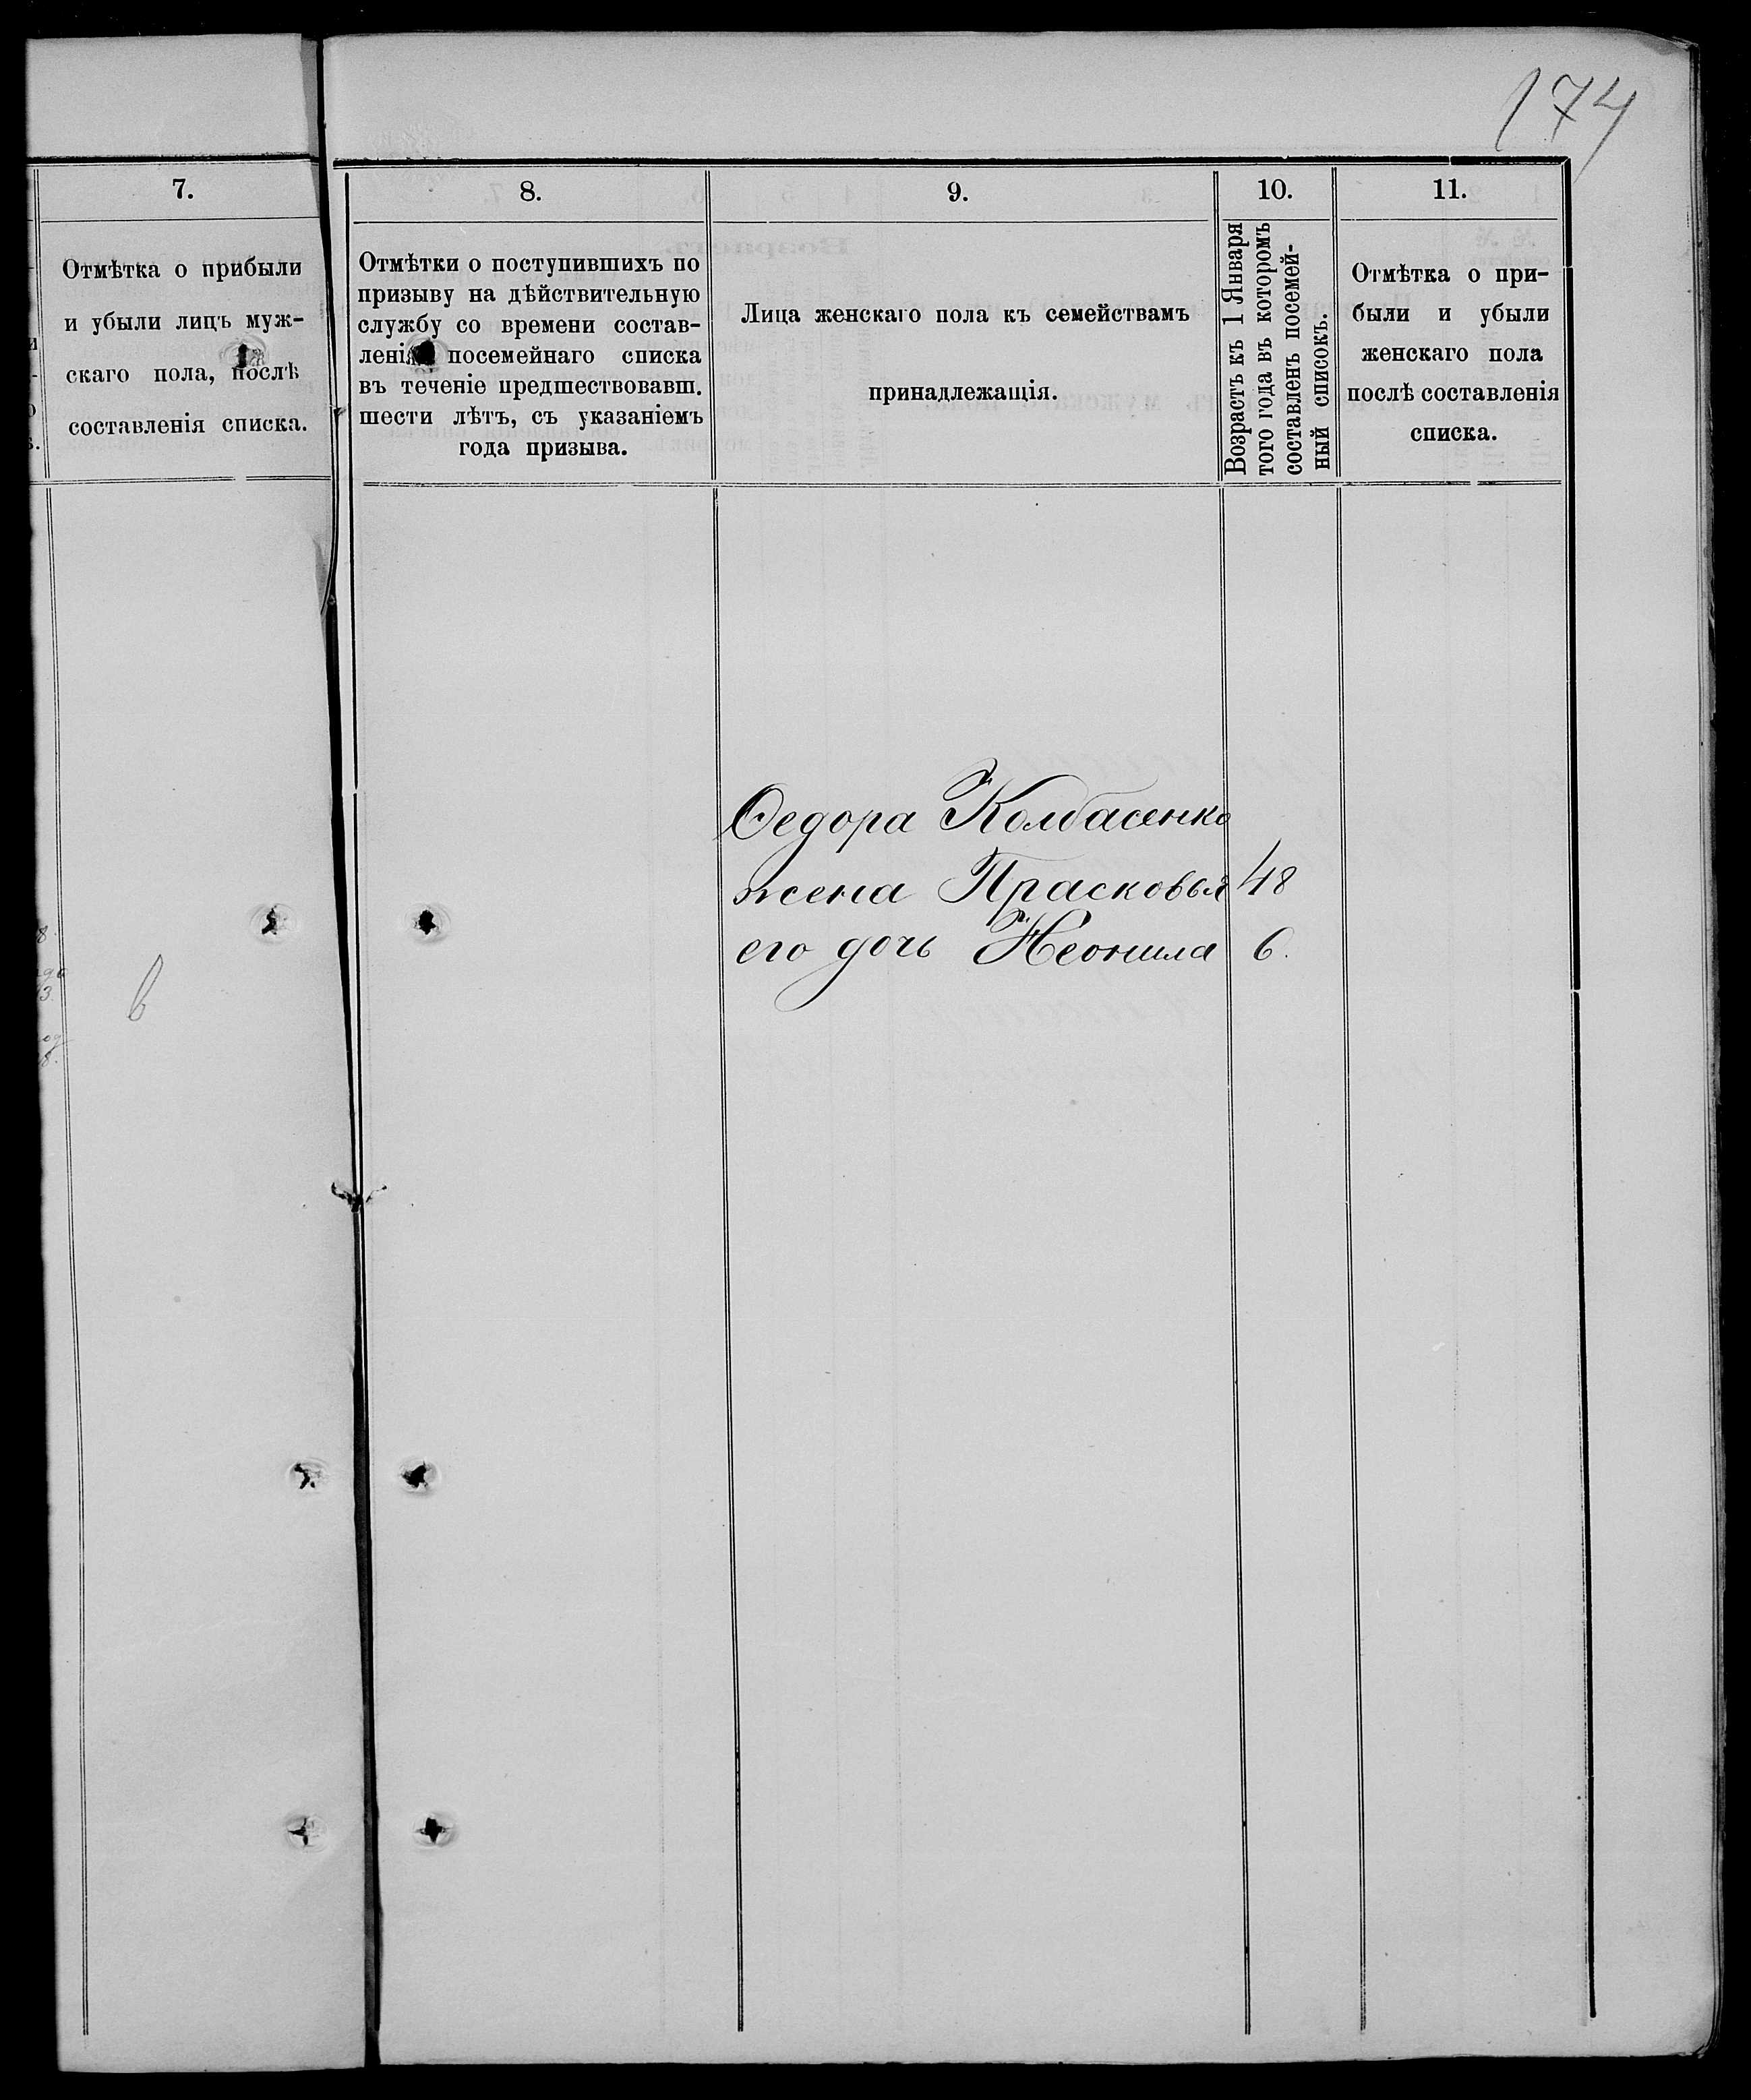 174
7.
Отмѣтка о прибыли
и убыли лицъ муж-
скаго пола, послѣ
составленія списка.
8.
Отмѣтки о поступившихъ по
призыву на дѣйствительную
службу со времени состав-
ленія посемейнаго списка
въ теченіе предшествовавш.
шести лѣтъ, съ указаніемъ
года призыва.
9.
Лица женскаго пола къ семействамъ
принадлежащія.
10.
Возрастъ къ 1 Января
того года въ которомъ
составленъ посемей-
ный списокъ.
11.
Отмѣтка о при-
были и убыли
женскаго пола
послѣ составленія
списка.
Ѳедора Колбасенко
жена Прасковья 48
его дочь Неонила 6.